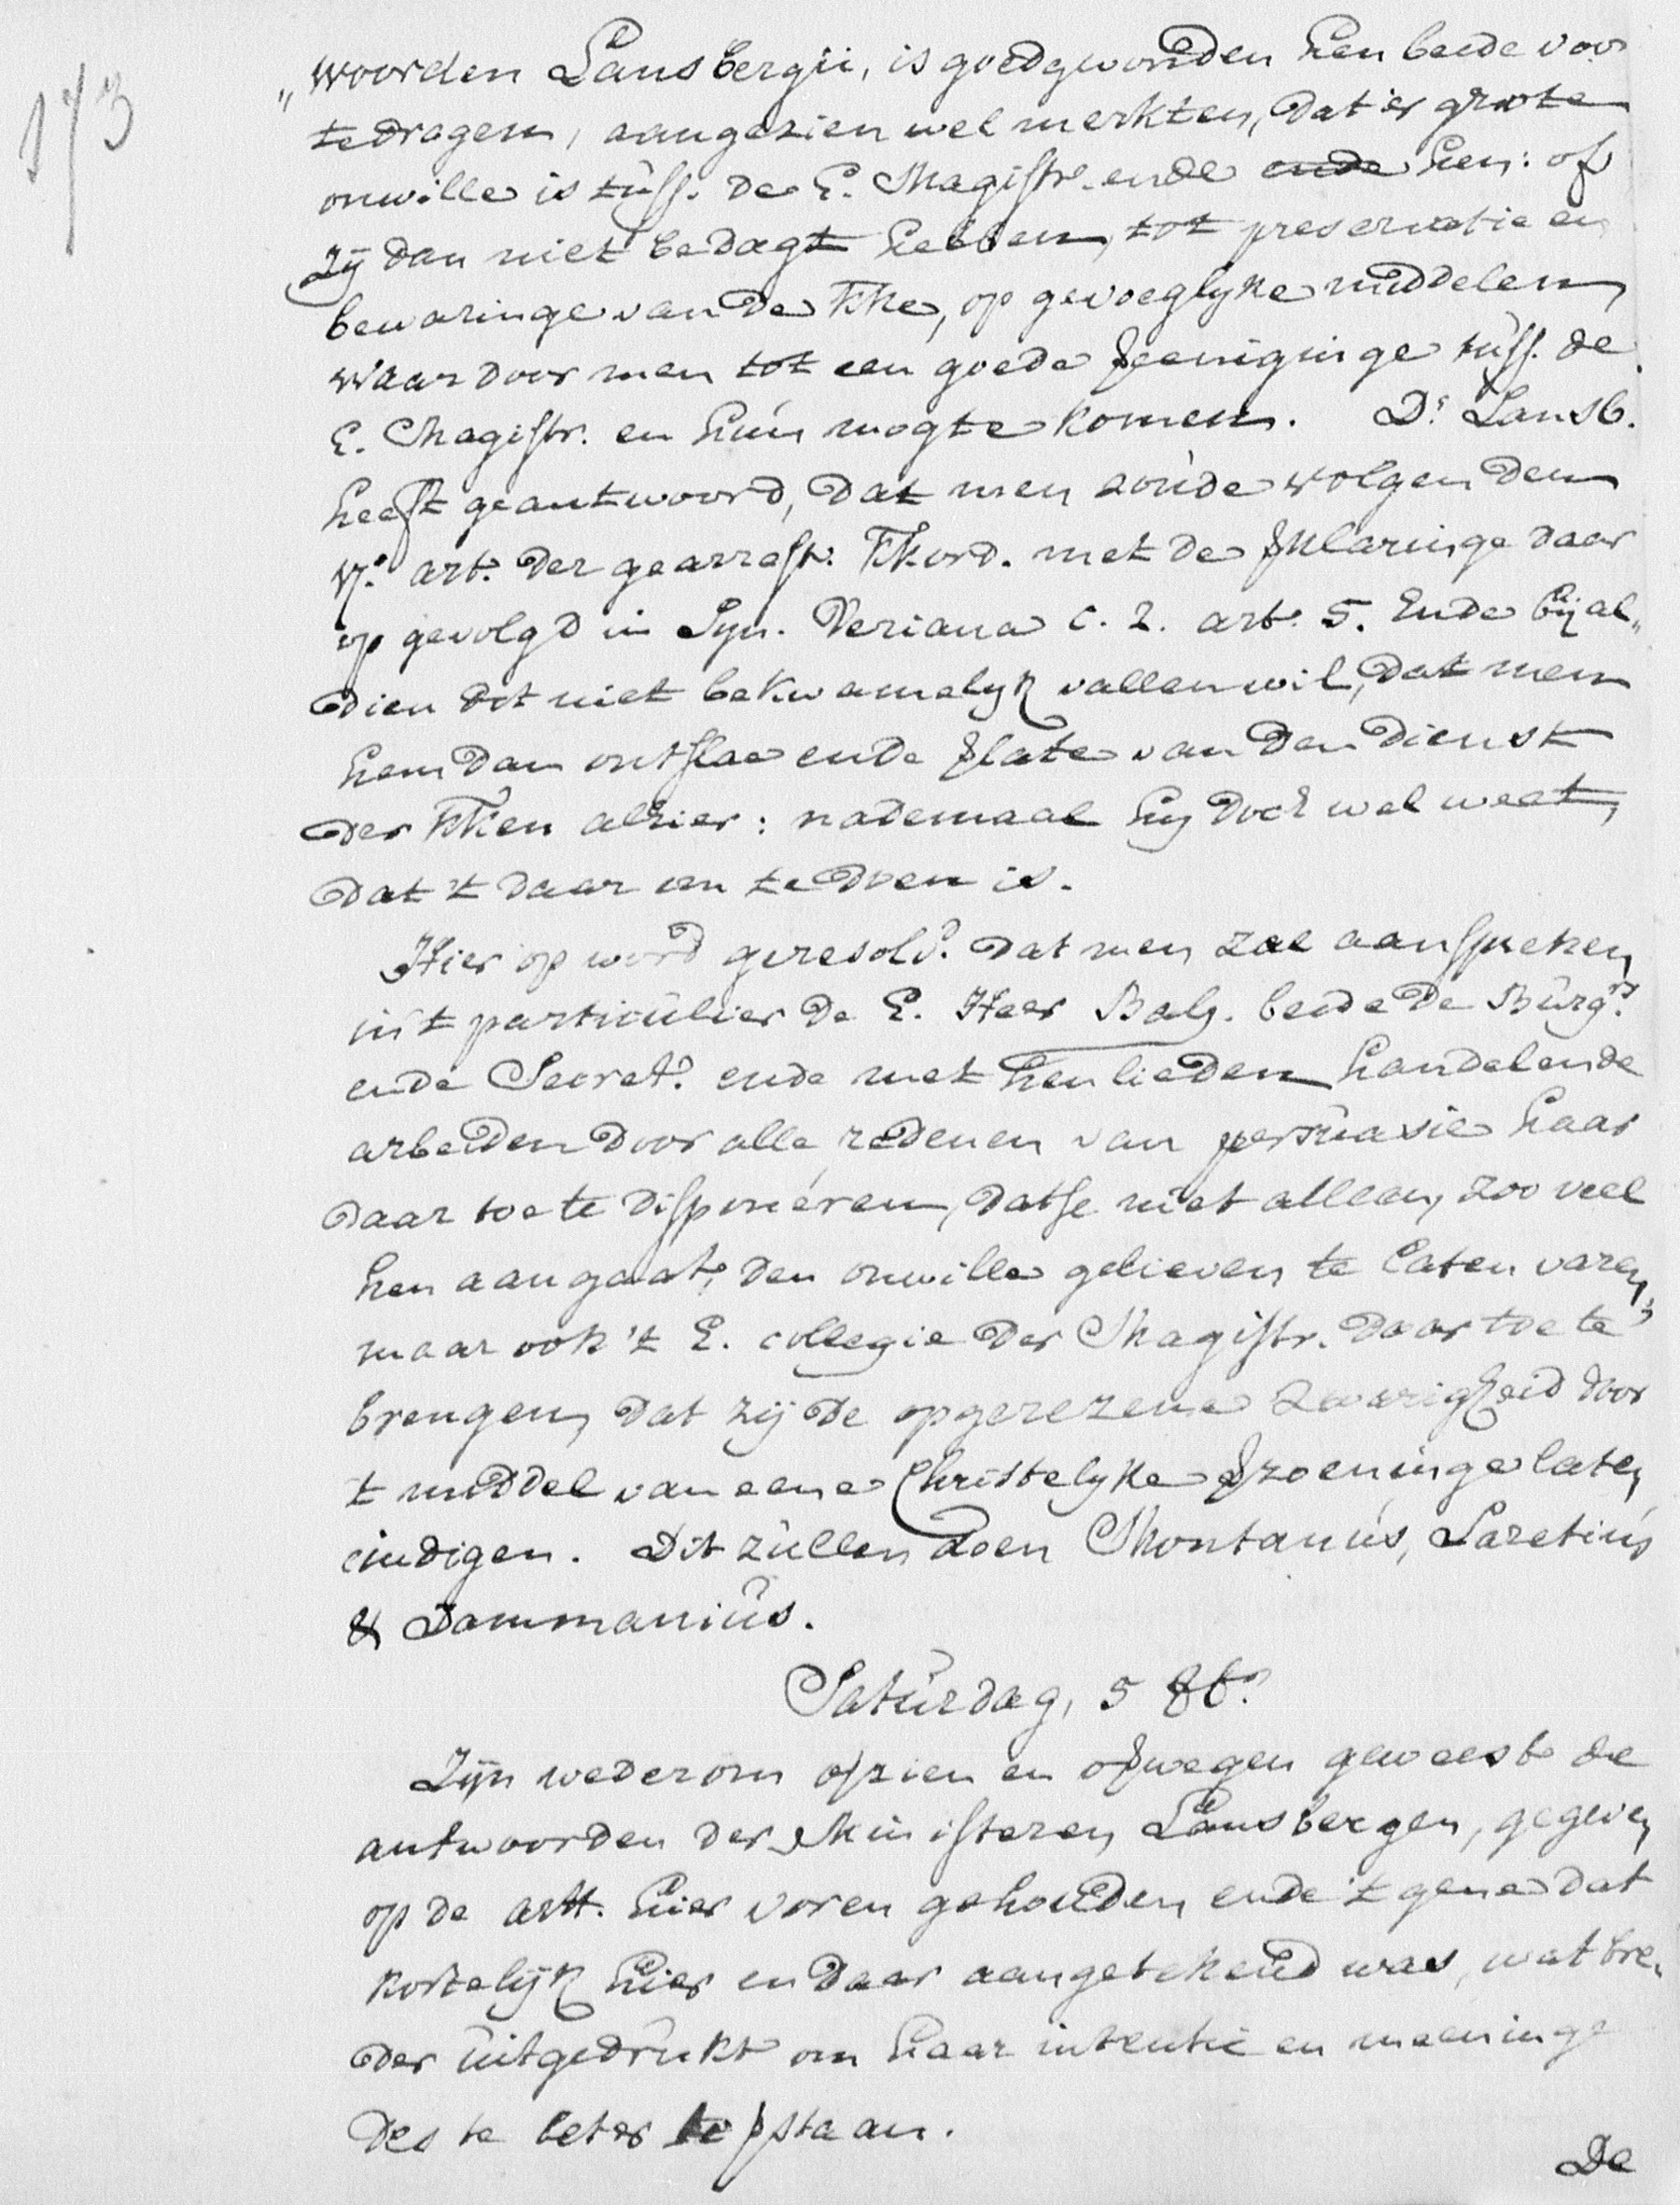 173
„woorden Lansbergii, is goedgevonden hen beede voor
te dragen, aangezien wel merkten, dat er groote
onwille is tuss. de E. Magistr. ende ende hen: of
zij dan niet bedagt hebben, tot preservatie en
bewaringe van de Kke, op gevoeglyke middelen,
waardoor men tot een goede ꝟeeniginge tuss. de
E. Magistr. en hun mogte komen. Ds. Lansb.
heeft geantwoord, dat men zoude volgen den
art. der gearrest. Kkord. met de ꝟklaringe daar
op gevolgd in Syn. Veriana c. 2. art. 5. Ende bij al„
dien dit niet bekwamelyk vallen wil, dat men
hem dan ontslae ende ꝟlate van den dienst
der Kken alhier: nademaal hy doch wel weet,
dat 't daar om te doen is.
Hier op word geresolv. dat men zal aanspreken
in 't particulier de E. Heer Balj. beide de Burgrs
ende Secret. ende met henlieden handelende
arbeiden door alle redenen van persuasie haar
daar toe te disponéren, datse niet alleen, zoo veel
hen aangaat, den onwille gelieven te laten varen,
maar ook 't E. collegie der Magistr. daar toe te
brengen, dat zij de opgerezene zwarigheid door
't middel van eene Christelyke ꝟzoeninge laten
eindigen. Dit zullen doen Montanus, Lazetius
& Dammanius.
Saturdag, 5 8br.
Zijn wederom opzien en ofwegen geweest de
antwoorden der Ministeren Lansbergen, gegeven
op de artt. hier voren gehouden, ende 't gene dat
kortelijk hier en daar aangetekend was, wat bre„
der uitgedrukt om haar intentie en meeninge
des te beter te ꝟstaan.
De